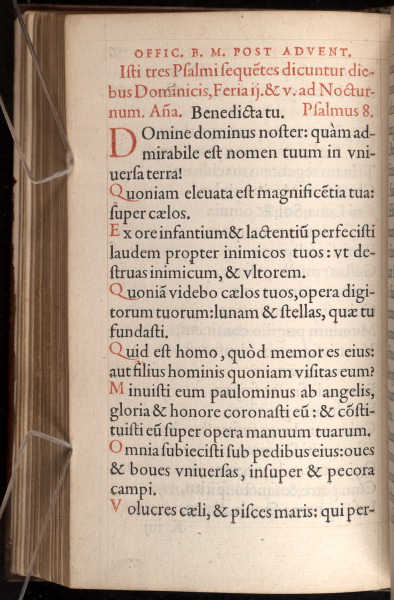 OFFIC. B. M. POST ADVENT.
Isti tres Psalmi sequẽtes dicuntur die-
bus Dominicis, Feria ij. & v. ad Noctur-
num. Aña. Benedicta tu. Psalmus 8.
Domine dominus noster: quàm ad-
mirabile est nomen tuum in vni-
uersa terra!
Quoniam eleuata est magnificẽtia tua:
super cælos.
Ex ore infantium & lactentiũ perfecisti
laudem propter inimicos tuos: vt de-
struas inimicum, & vltorem.
Quoniã videbo cælos tuos, opera digi-
torum tuorum: lunam & stellas, quæ tu
fundasti.
Quid est homo, quòd memor es eius:
aut filius hominis quoniam visitas eum?
Minuisti eum paulominus ab angelis,
gloria & honore coronasti eũ: & cõsti-
tuisti eũ super opera manuum tuarum.
Omnia subiecisti sub pedibus eius: oues
& boues vniuersas, insuper & pecora
campi.
Volucres cæli, & pisces maris: qui per-